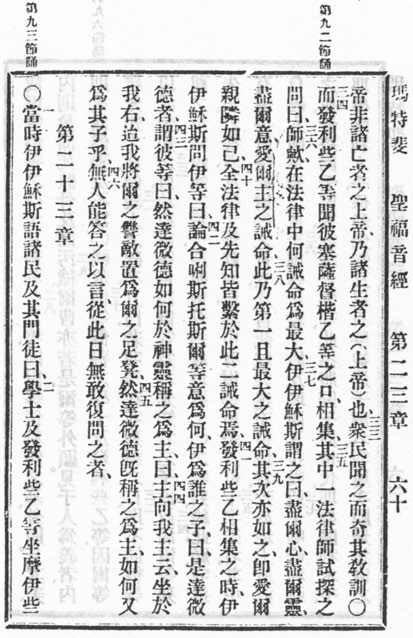 瑪特斐 聖福音經 第二三章 六十
第九二節誦
帝非諸亡者之上帝乃諸生者之(上帝)也三三衆民聞之而奇其敎訓○
三四而發利些乙等聞彼塞薩督楷乙等之口相集三五其中一法律師試探之
問曰三六師歟在法律中何誡命爲最大三七伊伊穌斯謂之曰盡爾心盡爾靈
盡爾意愛爾主之誡命三八此乃第一且最大之誡命三九其次亦如之卽愛爾
親隣如己四十全法律及先知皆繫於此二誡命焉四一發利些乙相集之時伊
伊穌斯問伊等曰四二論合唎斯托斯爾等意爲何伊爲誰之子曰是達微
德者四三謂彼等曰然達微德如何於神靈稱之爲主曰四四主向我主云坐於
我右迨我將爾之讐敵置爲爾之足凳四五然達微德旣稱之爲主如何又
爲其子乎四六無人能答之以言從此日無敢復問之者
第二十三章
第九三節誦
○一當時伊伊穌斯語諸民及其門徒曰二學士及發利些乙等坐摩伊些